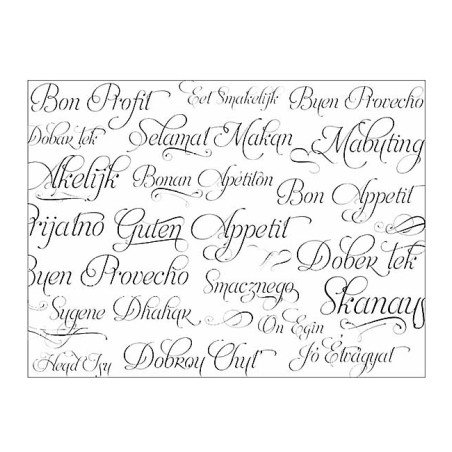 Bon Profit Eet Smakelijk Buen Provecho
Dobar tek Selamat Makan Mabuting
Akelijk Bonan Apétitón Bon Appetit
Prijatno Guten Appetit Dober tek
Buen Provecho Smacznego Skanaus
Sygene Dhahar On Egin
Dobrou Chuť Jó Étvágyat